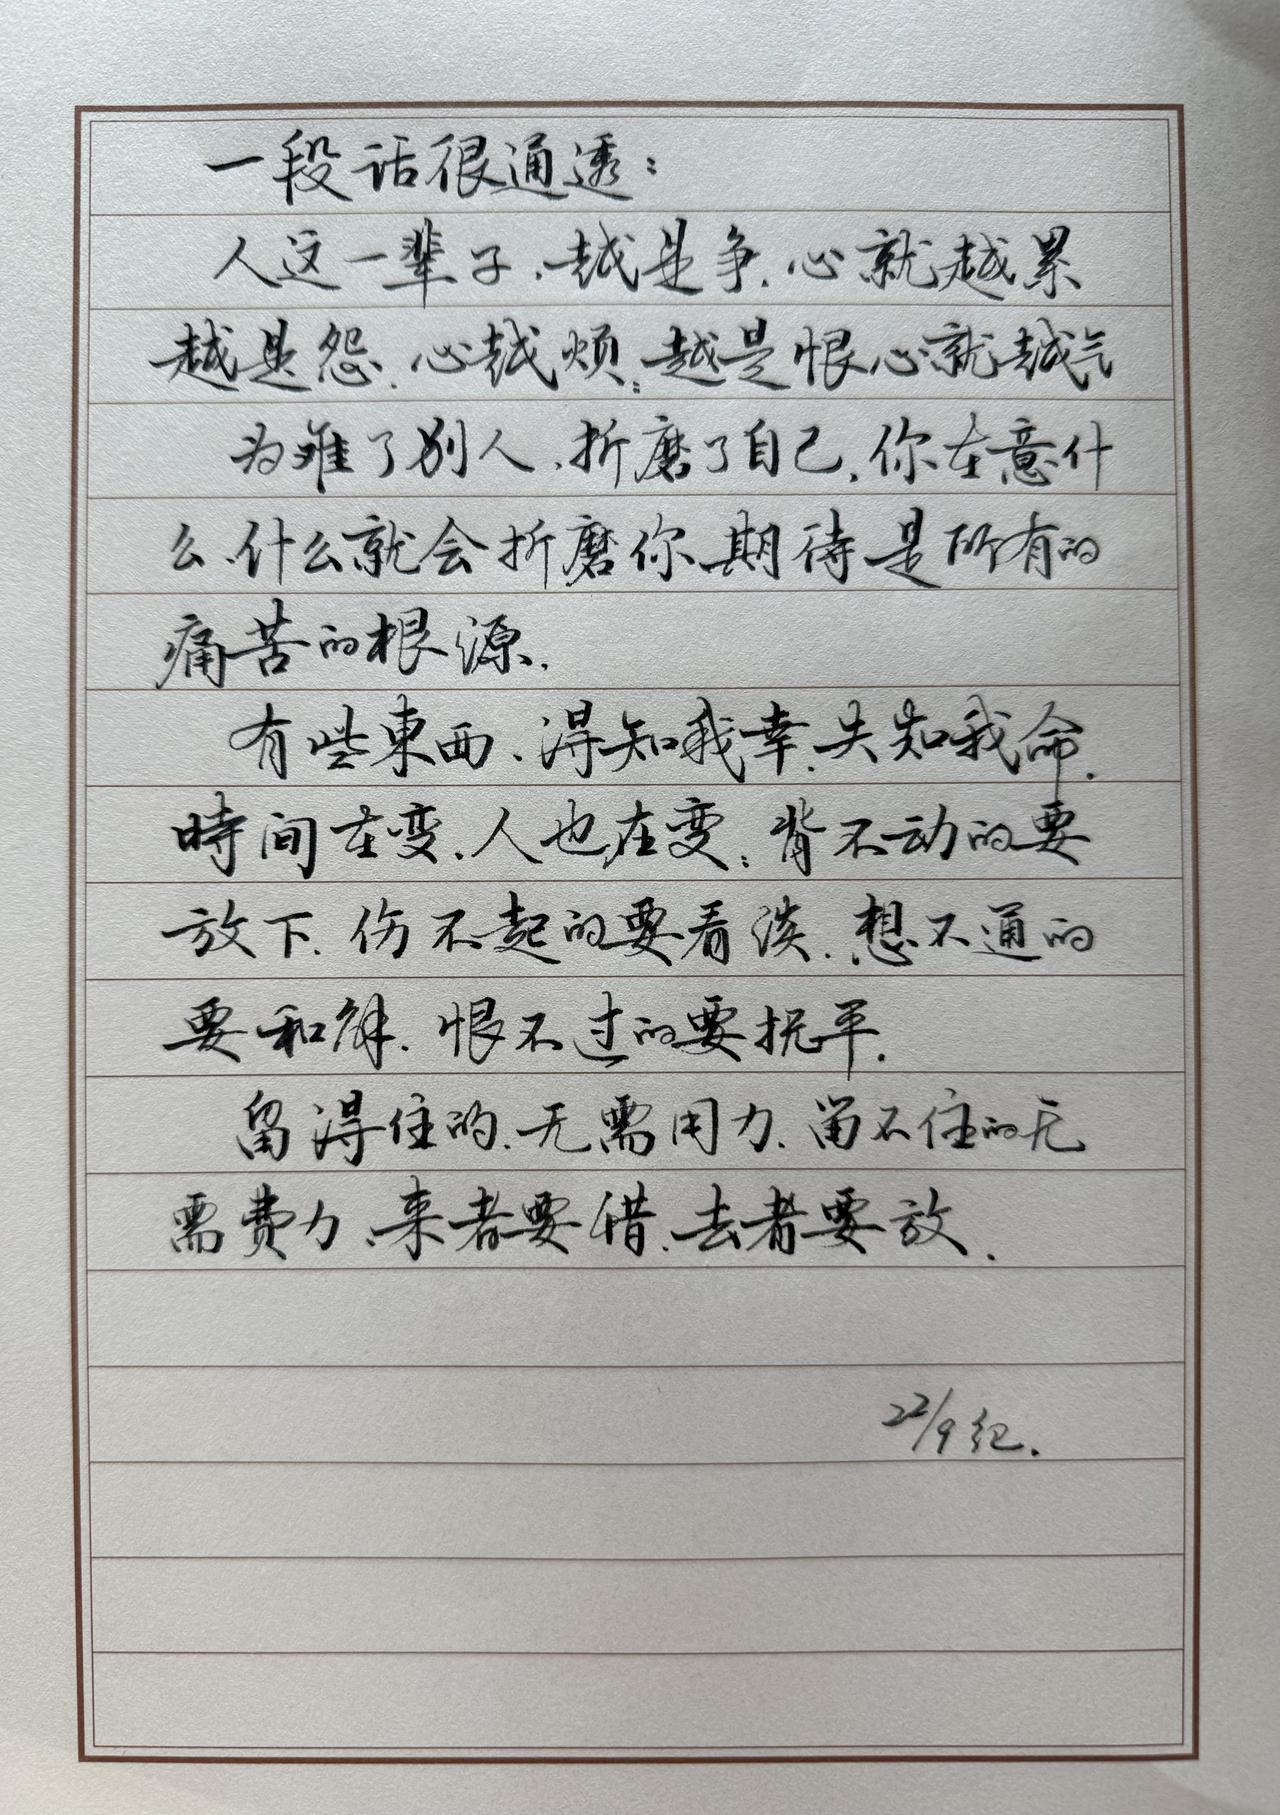 一段话很通透：
人这一辈子、越是争、心就越累
越是怨、心越烦；越是恨心就越气
为难了别人、折磨了自己、你在意什
么、什么就会折磨你、期待是所有的
痛苦的根源.
有些東西、得知我幸、失知我命.
時间在变、人也在变；背不动的要
放下、伤不起的要看淡、想不通的
要和解、恨不过的要抚平.
留得住的、无需用力、留不住的无
需费力、来者要惜、去者要放.
22/9纪.